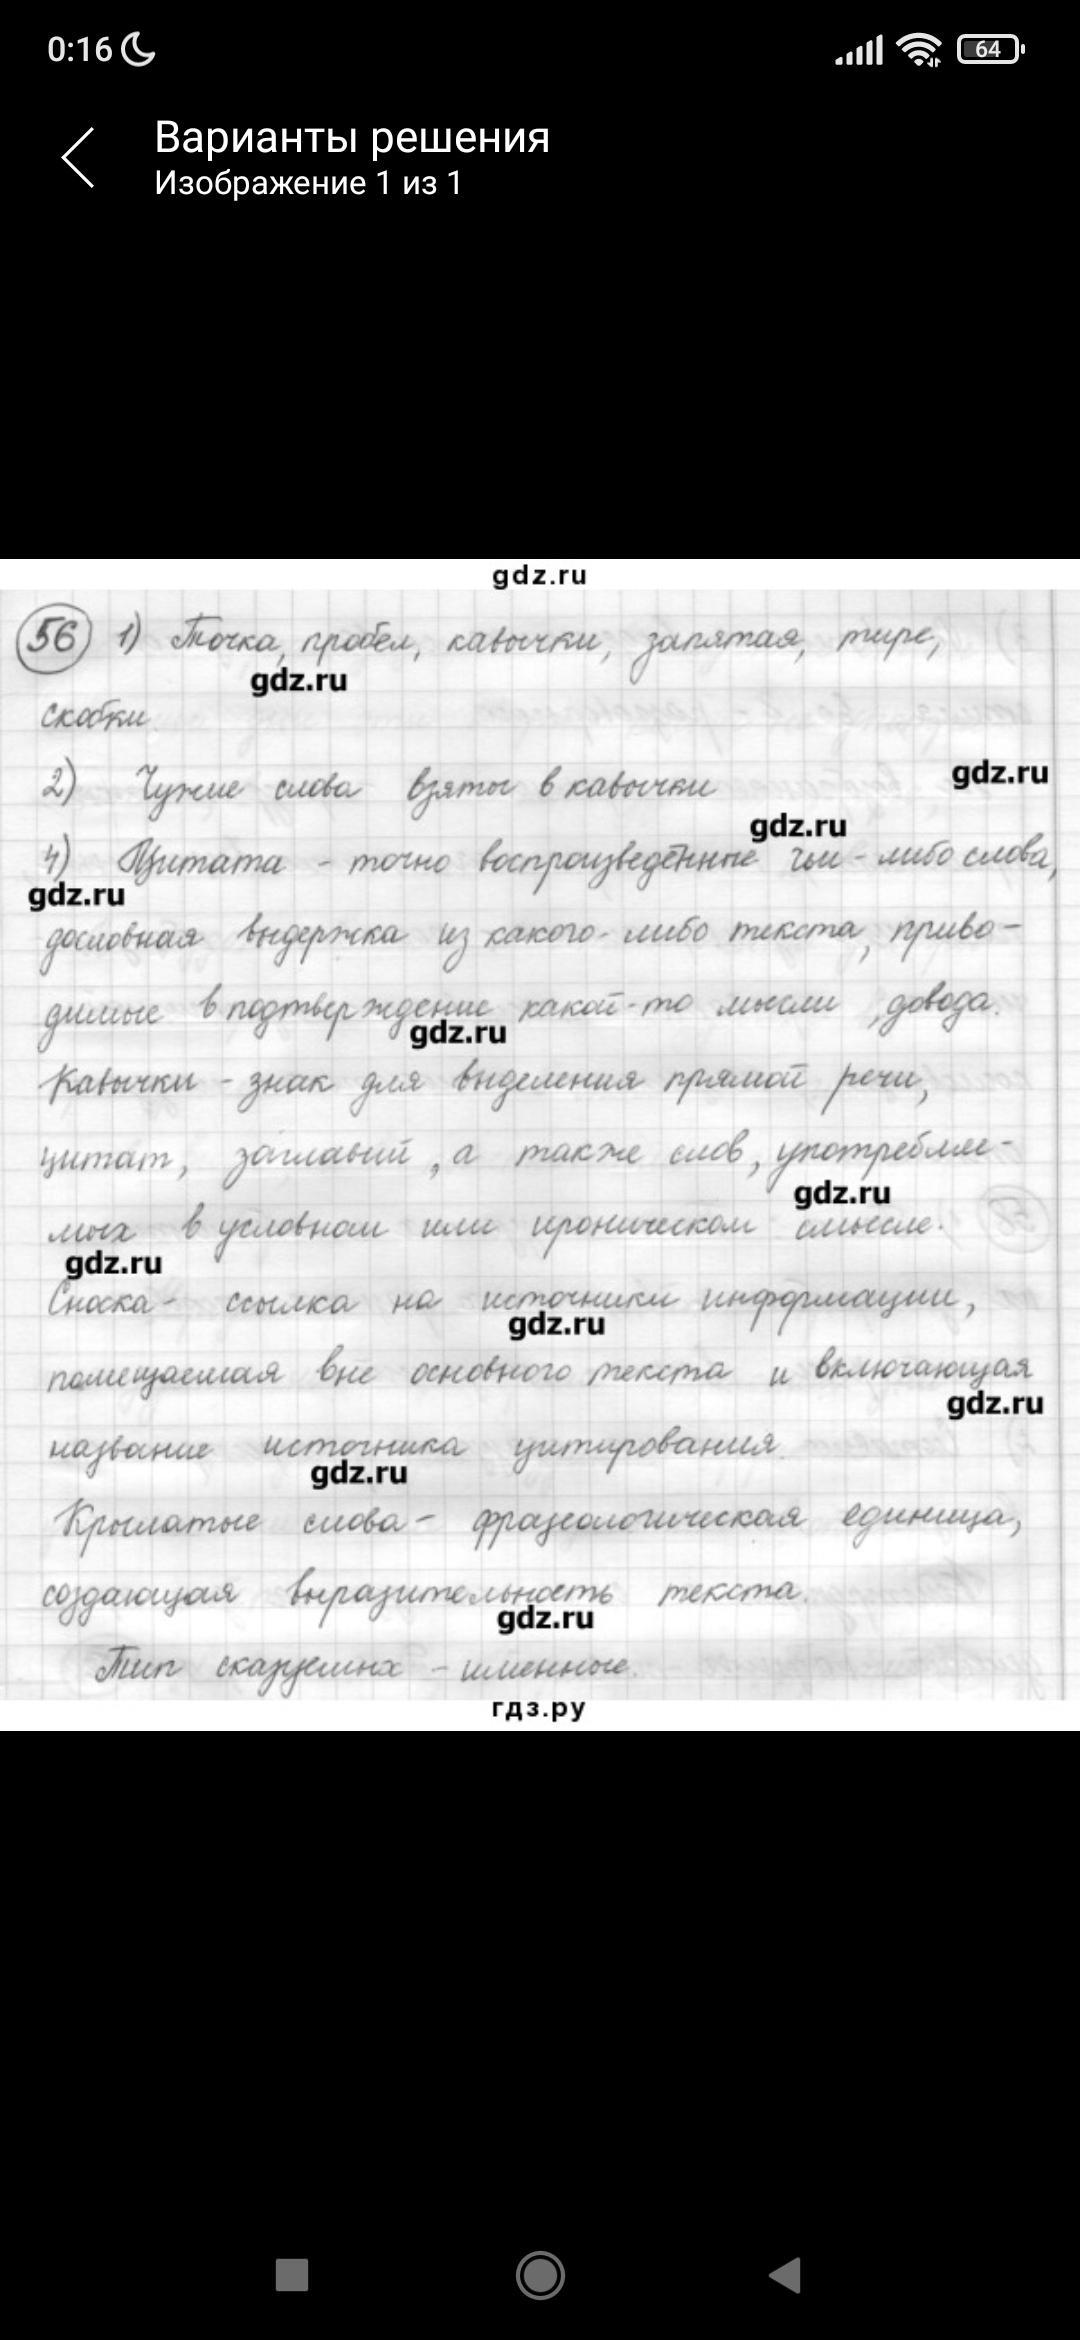 0:16
64
Варианты решения
Изображение 1 из 1
gdz.ru
56 1) Точка, пробел, кавычки, запятая, тире,
gdz.ru
скобки.
2) Чужие слова взяты в кавычки
gdz.ru
gdz.ru
4) Цитата - точно воспроизведённые чьи-либо слова,
gdz.ru
дословная выдержка из какого-либо текста, приво-
димые в подтверждение какой-то мысли, довода.
gdz.ru
Кавычки - знак для выделения прямой речи,
цитат, заглавий, а также слов, употребляе-
gdz.ru
мых в условном или ироническом смысле.
gdz.ru
Сноска - ссылка на источники информации,
gdz.ru
помещаемая вне основного текста и включающая
gdz.ru
название источника цитирования.
gdz.ru
Крылатые слова - фразеологическая единица,
создающая выразительность текста.
gdz.ru
Тип сказуемых - именные.
гдз.ру